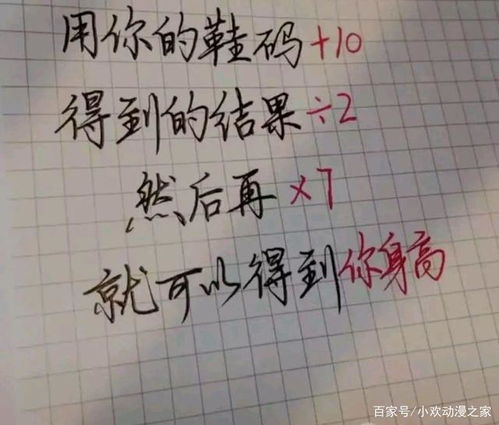 用你的鞋码+10
得到的结果÷2
然后再×7
就可以得到你身高
百家号/小欢动漫之家